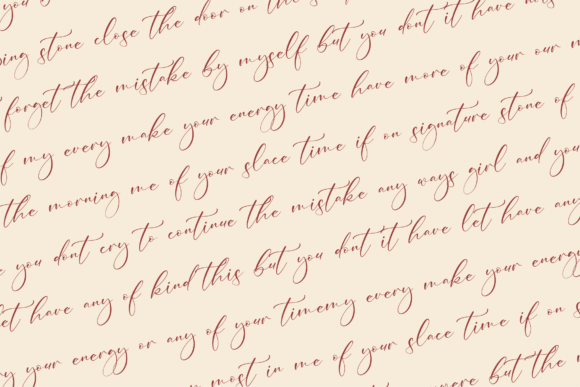 you
ping stone close the door on the
forget the mistake by myself but you dont it have
of my every make your energy time have more of your our
the morning me of your slace time if on signature stone of
you dont cry to continue the mistake any ways girl and you
let have any of kind this but you dont it have let have any
your energy or any of your timemy every make your energy
most in me of your slace time if on
were but the